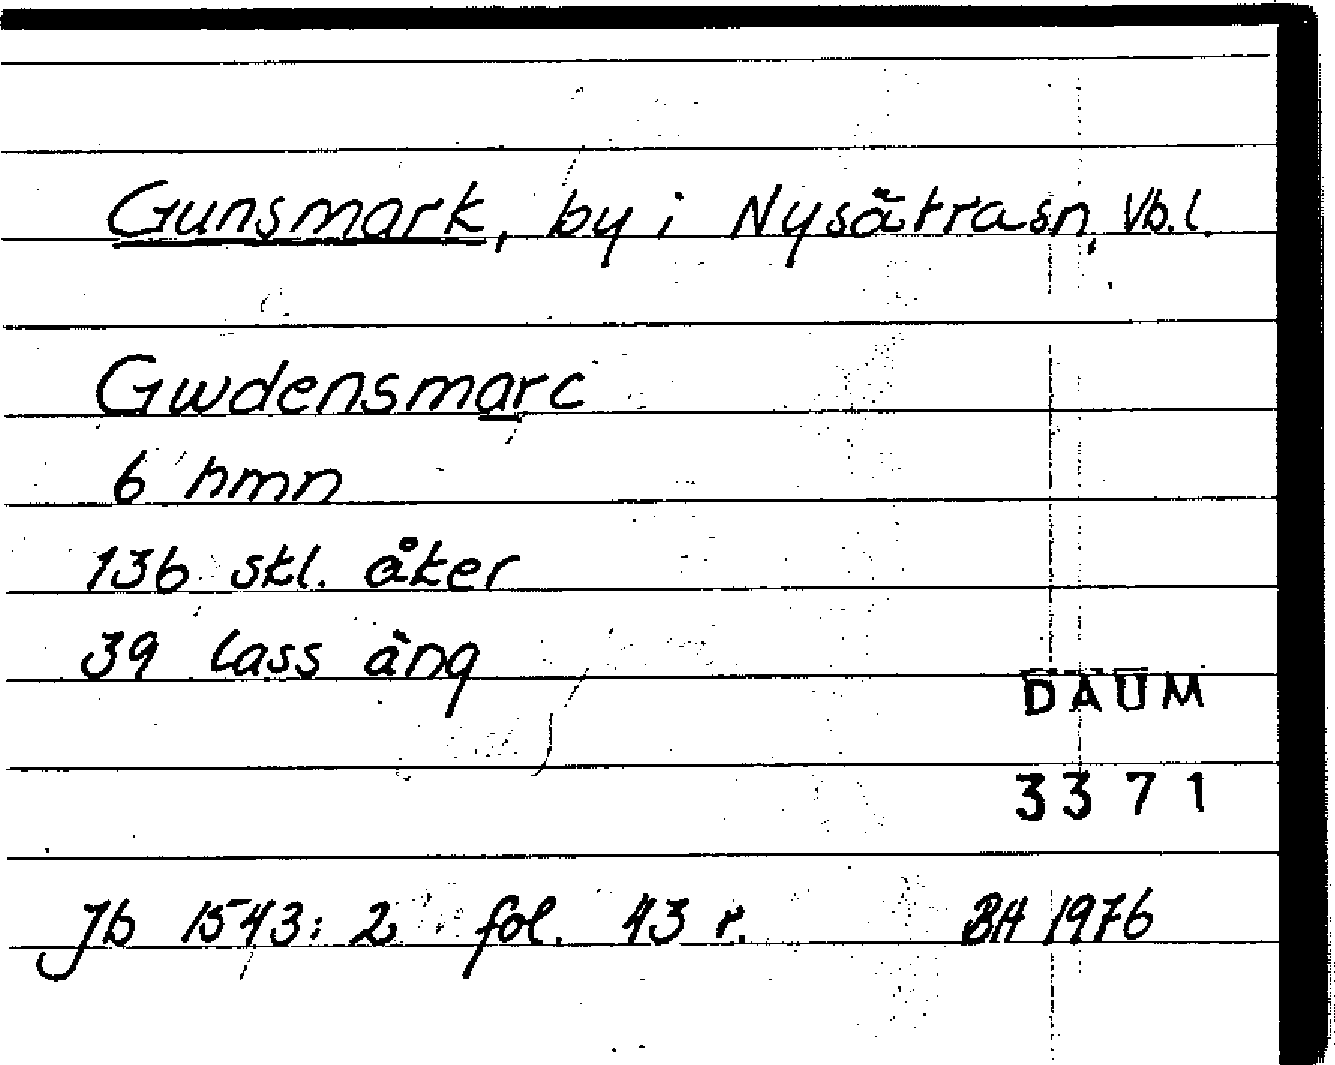 Gunsmark, by i Nysätrasn, Vb.l.
Gwdensmarc
6 hmn
136 skl. åker
39 lass äng
DAUM
3371
Jb 1543: 2 fol. 43 r. BH 1976